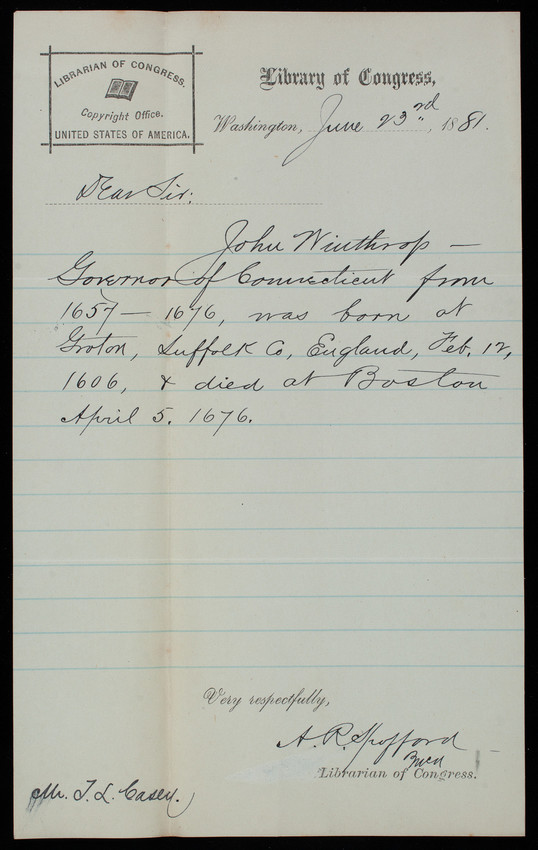 LIBRARIAN OF CONGRESS.
Copyright Office.
UNITED STATES OF AMERICA.
Library of Congress,
Washington, June 23rd, 1881.
Dear Sir:
John Winthrop —
Governor of Connecticut from
1657 — 1676, was born at
Groton, Suffolk Co, England, Feb. 12,
1606, & died at Boston
April 5. 1676.
Very respectfully,
A. R. Spofford
Librarian of Congress.
Mr. T. L. Casey.